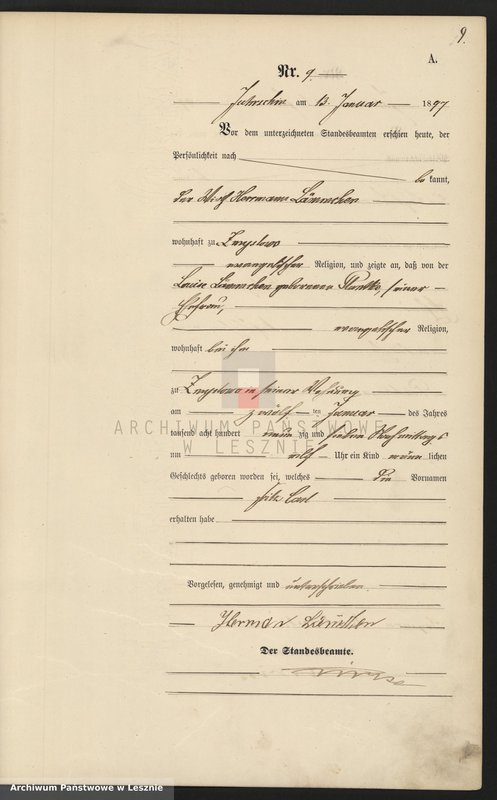 9.
A.
Nr. 9.
Jutroschin am 13. Januar 1897
Vor dem unterzeichneten Standesbeamten erschien heute, der
Persönlichkeit nach
be kannt,
der Wirt Hermann
wohnhaft zu Zmyslowo
evangelischer Religion, und zeigte an, daß von der
Louise geborenen seiner
Ehefrau,
evangelischer Religion,
wohnhaft bei ihm
zu Zmyslowo in seiner Wohnung
am zwölf ten Januar des Jahres
tausend acht hundert neun zig und sieben Vormittags
um elf Uhr ein Kind männ lichen
Geschlechts geboren worden sei, welches die Vornamen
Fritz Carl
erhalten habe
Vorgelesen, genehmigt und unterschrieben
Herman
Der Standesbeamte.
ARCHIWUM PAŃSTWOWE
W LESZNIE
Archiwum Państwowe w Lesznie